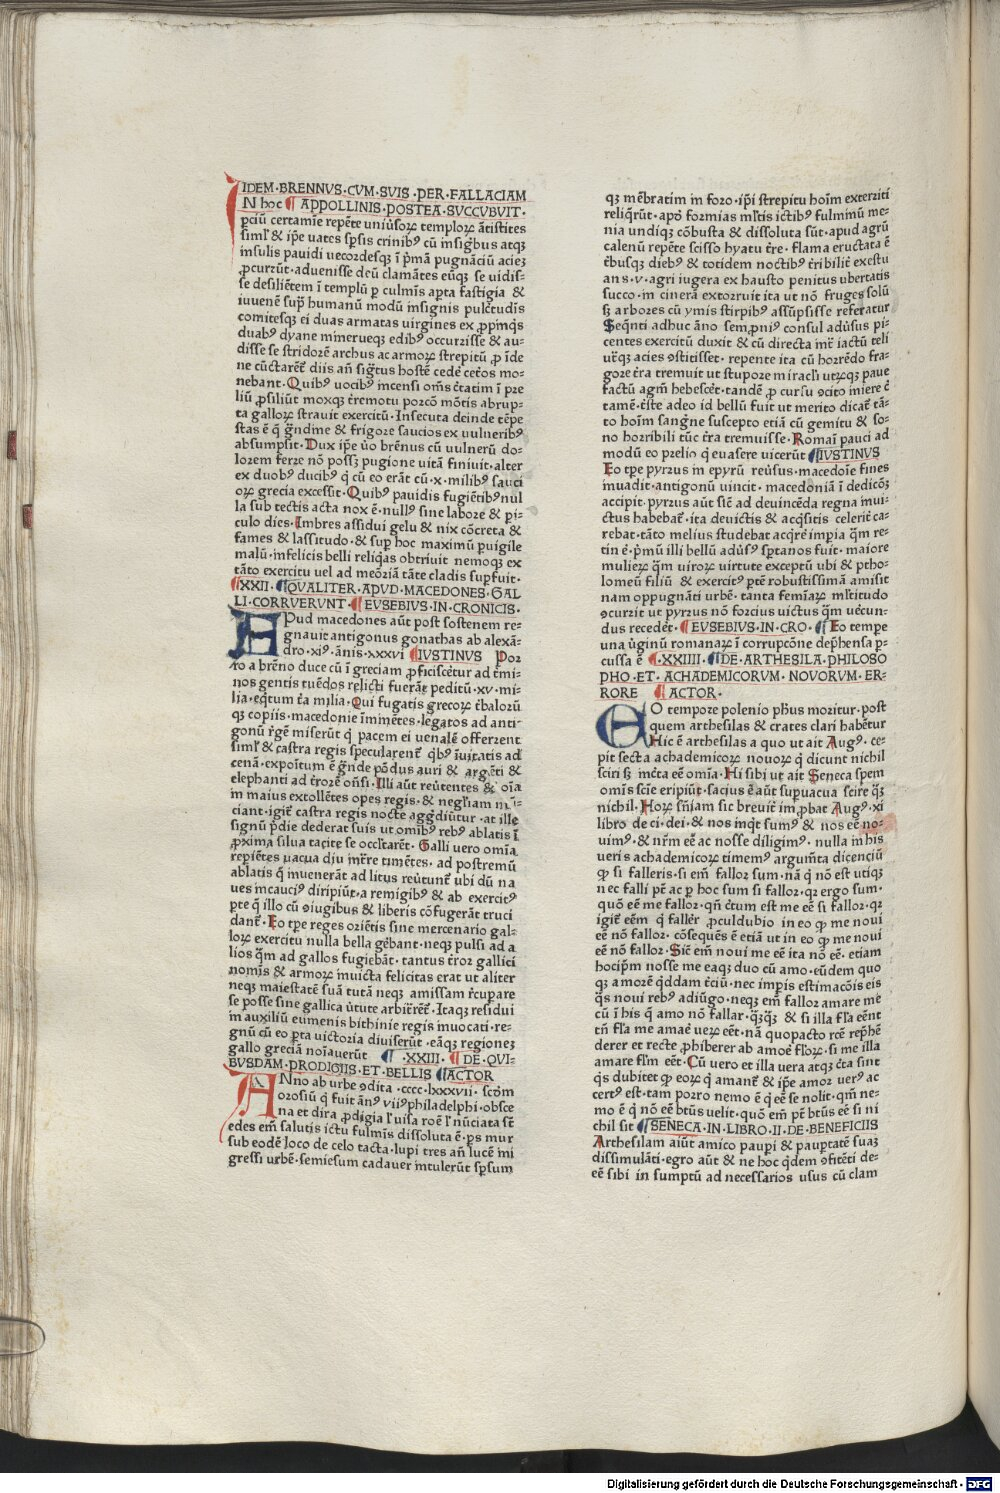 IDEM·BRENNVS·CVM·SVIS·PER·FALLACIAM
IN hoc ¶ APPOLLINIS·POSTEA·SVCCVBVIT·
ꝑciū certamīe repēte uniu̾soꝝ temploꝝ ātistites
siml̄ & ip̄e uates sꝑsis crinibꝰ cū insigībus atqꝫ
insulis pauidi uecordesqꝫ ī p̄mā pugnāciū acieꝫ
ꝓcurrūt·aduenisse deū clamātes eūqꝫ se uidis⸗
se desiliētem ī templū ꝑ culmīs aꝑta fastigia &
iuuenē sup̄ humanū modū insignis pulc̄tudīs
comitesqꝫ ei duas armatas uirgines ex ꝓpīqs
duabꝰ dyane mineruęqꝫ edibꝰ occurrisse & au⸗
disse se stridorē archus ac armoꝝ strepitū ꝓ īde
ne cūctarēt̄ diis añ sigt̄us hostē cedē cet̄os mo⸗
nebant·Quibꝰ uocibꝰ incensi om̄s c̄tatim ī pre
liū ꝓsiliūt moxqꝫ t̄remotu porcō mōtis abrup⸗
ta galloꝝ strauit exercitū·Insecuta deinde tēpe
stas ē q̄ grādine & frigore saucios ex uulneribꝰ
absumpsit·Dux ip̄e u̾o brēnus cū uulnerū do⸗
lorem ferre nō possꝫ pugione uitā finiuit·alter
ex duobꝰ ducibꝰ q̄ cū eo erāt cū·x·milibꝰ sauci
oꝝ grecia excessit·Quibꝰ pauidis fugiētibꝰ nul
la sub tectis acta nox ē·nullꝰ sine labore & ꝑi⸗
culo dies·Imbres assidui gelu & nix cōcreta &
fames & lassitudo·& sup̄ hoc maximū ꝑuigile
malū·infelicis belli reliq̄as obtriuit nemoqꝫ ex
tāto exercitu uel ad meōriā tāte cladis suꝑfuit·
¶XXII·¶QVALITER·APVD·MACEDONES·GAL
LI·CORRVERVNT·¶EVSEBIVS·IN·CRONICIS·
APud macedones aūt post sostenem re⸗
gnauit antigonus gonathas ab alexā⸗
dro·xiꝰ·ānis·xxxvi ¶IVSTINVS Por
ro a brēno duce cū ī greciam ꝓficiscet̄ur ad t̄mi⸗
nos gentis tuēdos relicti fuerāt peditū·xv·mi⸗
lia·eq̄tum t̄a milia·Qui fugatis grecoꝝ t̄balorū
qꝫ copiis·macedonie īminētes·legatos ad anti⸗
gonū r̄gē miserūt q̄ pacem ei uenalē offerrent
siml̄ & castra regis specularent̄ q̄bꝰ īuitatis ad
cenā·expositum ē grāde pōdus auri & argēti &
elephanti ad t̄rorē oñsi·Illi aūt reu̾tentes & oīa
in maius extollētes opes regis·& negliam nū⸗
ciant·igit̄ castra regis nocte aggdiūtur·at ille
signū p̄die dederat suis ut omībꝰ rebꝰ ablatis ī
ꝓxima silua tacite se occl̄tarēt·Galli uero omīa
repiētes uacua diu int̄re timētes·ad postremū
ablatis q̄ inuenerāt ad litus reu̾tunt̄ ubi dū na
ues incauciꝰ diripiūt·a remigibꝰ & ab exercitꝰ
ꝑte q̄ illo cū ɔiugibus & liberis cōfugerāt truci
dant̄·Eo tp̄e reges oriētis sine mercenario gal⸗
loꝝ exercitu nulla bella gēbant·neqꝫ pulsi ad a
lios q̄m ad gallos fugiebāt·tantus t̄ror gallici
nomīs & armoꝝ inuicta felicitas erat ut aliter
neqꝫ maiestatē suā tutā neqꝫ amissam r̄cupare
se posse sine gallica u̾tute arbitrēt̄·Itaqꝫ residui
in auxiliū eumenis bithinie regis inuocati·re⸗
gnū cū eo ꝑta uictoria diuiserūt·eāqꝫ regioneꝫ
gallo greciā noīauerūt ¶·XXIII·¶DE·QVI⸗
BVSDAM·PRODIGIIS·ET·BELLIS ¶ACTOR
ANno ab urbe ɔdita·cccc·lxxxvii·scdm̄
orosiū q̄ fuit ānꝰ viiꝰ philadelphi·obsce
na et dira ꝓdigia l̄ uisa roē l̄ nūciata sēt
edes em̄ salutis ictu fulmīs dissoluta ē·ꝑs mur
sub eodē loco de celo tacta·lupi tres añ lucē īni
gressi urbē·semiesum cadauer intulerūt sꝑsum
qꝫ mēbratim in foro·ip̄i strepitu hoīm exterriti
reliq̄rūt·apd̄ formias ml̄tis ictibꝰ fulminū me⸗
nia undiqꝫ cōbusta & dissoluta sūt·apud agrū
calenū repēte scisso hyatu t̄re·flama eructata ē
t̄busqꝫ diebꝰ & totidem noctibꝰ t̄ribilit̄ exestu
ans·v·agri iugera ex hausto penitus ubertatis
succo·in cinerā extorruit ita ut nō fruges solū
sꝫ arbores cū ymis stirpibꝰ assūpsisse referatur
Seqn̄ti adhuc āno semꝓniꝰ consul adu̾sus pi⸗
centes exercitū duxit & cū directa int̄ iactū teli
ut̄qꝫ acies ɔstitisset·repente ita cū horrēdo fra⸗
gore t̄ra tremuit ut stupore miracl̄i utꝝqꝫ paue
factū agm̄ hebescet̄·tandē ꝓ cursu ɔcito iniere t̄
tamē·t̄iste adeo id bellū fuit ut merito dicat̄ tā⸗
to hoīm sangne suscepto etiā cū gemitu & so⸗
no horribili tūc t̄ra tremuisse·Romai pauci ad
modū eo prelio q̄ euasere uicerūt ¶IVSTINVS
Eo tpe pyrrus in epyrū reu̾sus·macedoīe fines
inuadit·antigonū uincit·macedoniā ī dedicōꝫ
accipit·pyrrus aūt siē ad deuincēda regna inui⸗
ctus habebat̄·ita deuictis & acq̄sitis celerit̄ ca⸗
rebat·tāto melius studebat acq̄rere impīa q̄m re⸗
tin ē·p̄mū illi bellū adu̾sꝰ sꝑtanos fuit·maiore
mulieꝝ q̄m uiroꝝ uirtute exceptū ubi & ptho⸗
lomeū filiū & exercitꝰ ꝑtē robustissimā amisit
nam oppugnāti urbē·tanta femīaꝝ ml̄titudo
ɔcurrit ut pyrrus nō forcius uictus q̄m uecun⸗
dus recedet̄·¶EVSEBIVS·IN·CRO·¶Eo tempe
una u̾ginū romanaꝝ ī corrupcōne dep̄hensa ꝑ⸗
cussa ē ¶·XXIIII·¶DE·ARTHESILA·PHILOSO
PHO·ET·ACHADEMICORVM·NOVORVM·ER⸗
RORE ¶ACTOR·
EO tempore polenio ph̄us moritur·post
quem arthesilas & crates clari habētur
Hic ē arthesilas a quo ut ait Augꝰ·ce⸗
pit secta achademicoꝝ nouoꝝ q̄ dicunt nichil
sciri sꝫ inc̄ta eē omīa·Hi sibi ut ait Seneca spem
omīs scīe eripiūt·sacius ē aūt suꝑuacua scire q̄ꝫ
nichil·Hoꝝ sn̄iam sic breuit̄ imꝓbat Augꝰ·xi
libro de ci·dei·& nos inq̄t sumꝰ & nos eē no⸗
uimꝰ·& nr̄m eē ac nosse diligimꝰ·nulla in his
ueris achademicoꝝ timemꝰ argumt̄a dicenciū
ꝙ si falleris·si em̄ fallor sum·nā q̄ nō est utiqꝫ
nec falli pēt ac ꝑ hoc sum si fallor·qꝛ ergo sum·
quō eē me fallor·qn̄ c̄tum est me eē si fallor·qꝛ
igit̄ eēm q̄ faller̄ ꝓculdubio in eo ꝙ me noui
eē nō fallor·cōsequēs ē etiā ut in eo ꝙ me noui
eē nō fallor·Siē em̄ noui me eē ita nō eē·etiam
hocip̄m nosse me eaqꝫ duo cū amo·eūdem quo
qꝫ amorē q̄ddam t̄ciū·nec impis estimacōis eis
q̄s noui rebꝰ adiūgo·neqꝫ em̄ fallor amare me
cū ī his q̄ amo nō fallar·q̄ꝫq̄ꝫ & si illa fl̄a eēnt
tn̄ fl̄a me amae ueꝝ eēt·nā quopacto rc̄ē rep̄hē
derer et recte ꝓhiberer ab amoē fl̄oꝝ·si me illa
amare fl̄m eēt·Cū uero et illa uera atqꝫ c̄ta sint
q̄s dubitet ꝙ eoꝝ q̄ amant̄ & ip̄e amor uerꝰ ac
certꝰ est·tam porro nemo ē q̄ eē se nolit·q̄m ne⸗
mo ē q̄ nō eē btūs uelit·quō em̄ pēt btūs eē si ni
chil sit ¶SENECA·IN·LIBRO·II·DE·BENEFICIIS
Arthesilam aiūt amico paupi & pauptatē suaꝫ
dissimulāti·egro aūt & ne hoc q̄dem ɔfitēti de⸗
eē sibi in sumptū ad necessarios usus cū clam
Digitalisierung gefördert durch die Deutsche Forschungsgemeinschaft - DFG